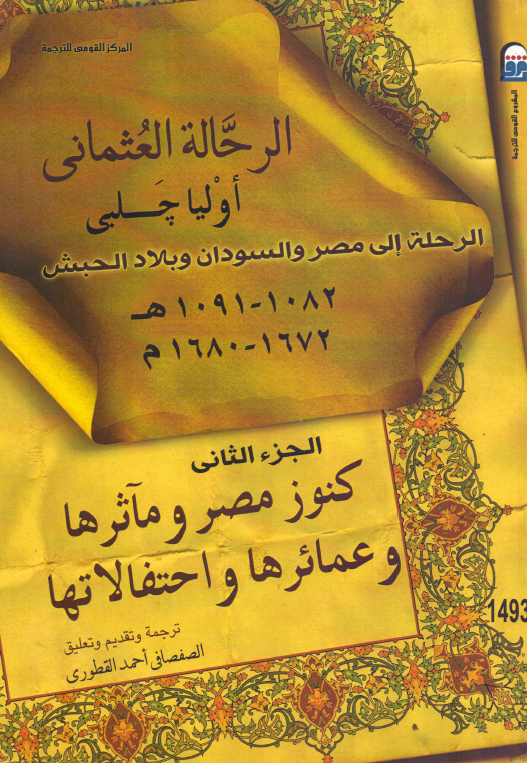 المركز القومى للترجمة
المشروع القومى للترجمة
الرحَّالة العُثمانى
أوْليا چَلبى
الرحلة إلى مصر والسودان وبلاد الحبش
١٠٨٢-١٠٩١ هـ
١٦٧٢-١٦٨٠ م
الجزء الثانى
كنوز مصر ومآثرها
وعمائرها واحتفالاتها
1493
ترجمة وتقديم وتعليق
الصفصافى أحمد القطورى